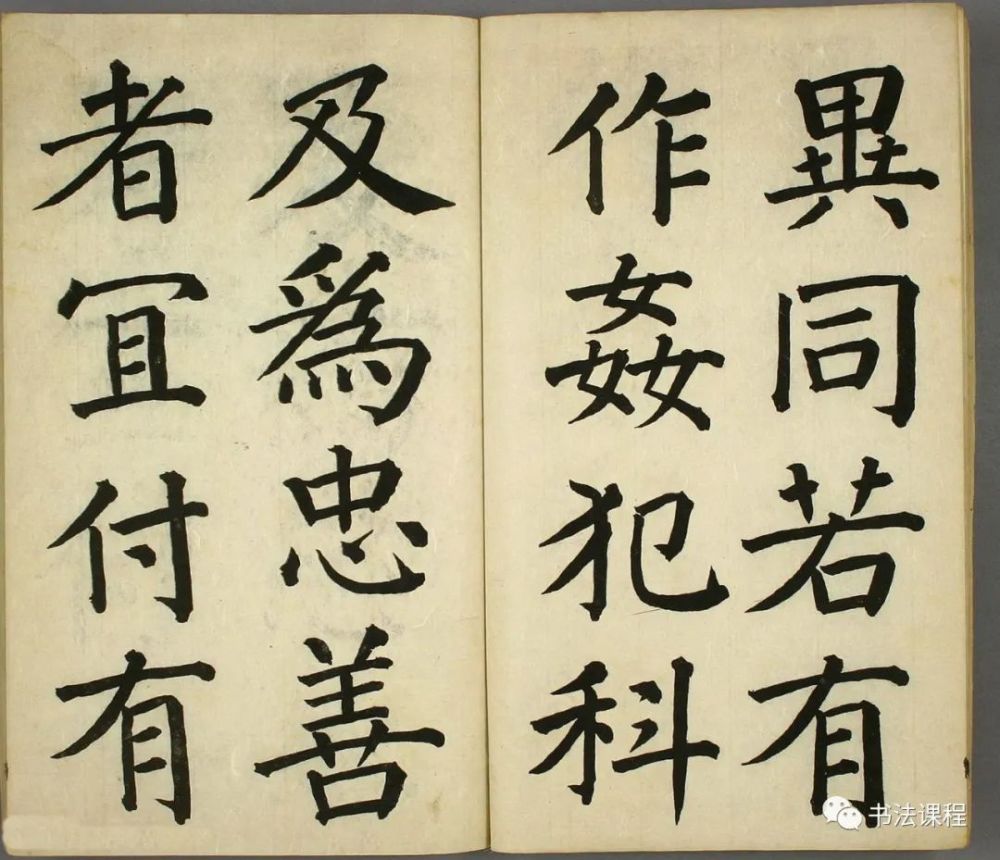 異同若有
作姦犯科
及為忠善
者宜付有
书法课程